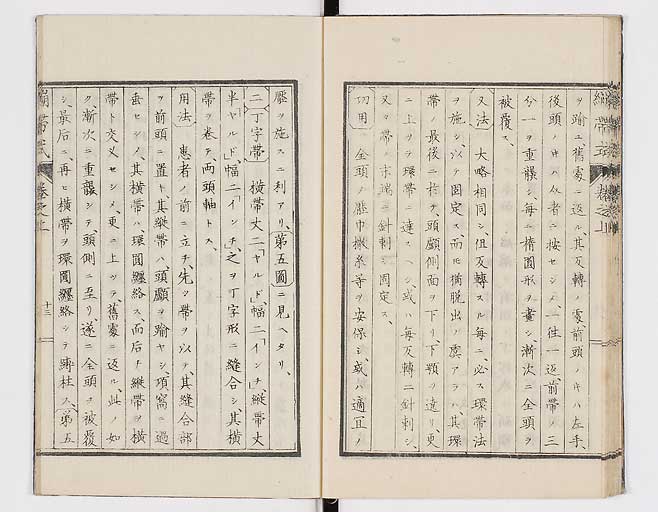 ヲ踰エ、舊處ニ返ル、其反轉ノ處、前頭ノ片ハ左手、
後頭ノ片ハ介者ニ按セシメ、一徃一返、前帶ノ三
分一ヲ重襲シ、毎ニ橢圓形ヲ畫シ、漸次ニ全頭ヲ
被覆ス、
又法 大略相同シ、但反轉スル毎ニ、必ス環帶法
ヲ施シ、以テ固定ス、而モ猶脱出ノ虞アラハ、其環
帶ノ最後ニ於テ、頭顱側面ヲ下リ、下顎ヲ遶リ、更
ニ上ツテ環帶ニ達スヘシ、或ハ毎反轉ニ針刺シ、
又タ帶ノ末端ニ針刺シ固定ス、
功用 全頭ノ壓巾撒糸等ヲ安保シ、或ハ適宜ノ
繃帶式 卷之上
壓ヲ施スニ利アリ、第五圖ニ見ヘタリ、
二丁字帶 横帶丈二「ヤルド」、幅二「インチ」、縱帶丈
半「ヤルド」、幅二「インチ」、之ヲ丁字形ニ縫合シ、其横
帶ヲ卷テ、兩頭軸トス、
用法 患者ノ前ニ立チ、先ツ帶ヲ以テ、其縫合部
ヲ前頭ニ置キ、其縱帶ハ頭顱ヲ踰ヤシ、項窩ニ過
垂セシメ、其横帶ハ、環圓纏絡ス、而后チ縱帶ヲ横
帶ト交叉セシメ、更ニ上ツテ、舊處ニ返ル、此ノ如
ク、漸次ニ重襲シテ、頭側ニ至リ、遂ニ全頭ヲ被覆
シ、最后ニ、再ヒ横帶ヲ環圓纏絡シテ跡柱ス、第五
繃帶式 卷之上 十三